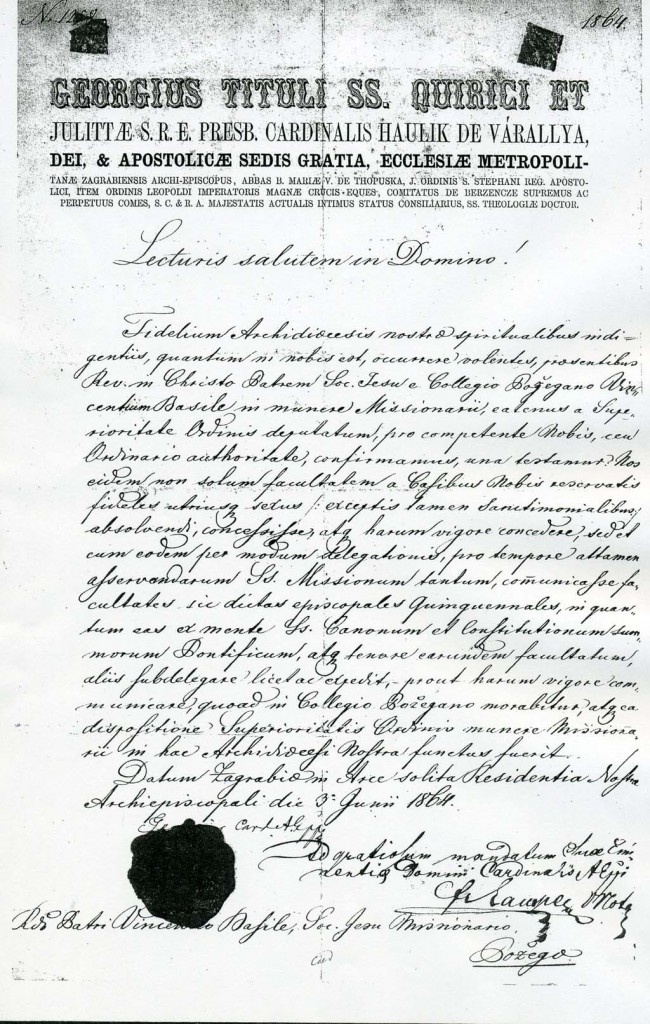 1864.
GEORGIUS TITULI SS. QUIRICI ET
JULITTÆ S. R. E. PRESB. CARDINALIS HAULIK DE VÁRALLYA,
DEI, & APOSTOLICÆ SEDIS GRATIA, ECCLESIÆ METROPOLI-
TANÆ ZAGRABIENSIS ARCHI-EPISCOPUS, ABBAS B. MARIÆ V. DE THOPUSKA, J. ORDINIS S. STEPHANI REG. APOSTO-
LICI, ITEM ORDINIS LEOPOLDI IMPERATORIS MAGNÆ CRUCIS-EQUES, COMITATUS DE BERZENCZE SUPREMUS AC
PERPETUUS COMES, S. C. & R. A. MAJESTATIS ACTUALIS INTIMUS STATUS CONSILIARIUS, SS. THEOLOGIÆ DOCTOR.
Lecturis salutem in Domino!
Fidelium Archidiœcesis nostræ spiritualibus indi=
gentiis, quantum in nobis est, occurrere volentes, præsentibus
Rev. in Christo Patrem Soc. Jesu e Collegio Požegano Vin=
centium Basile in munere Missionarii, eatenus a Supe=
rioritate Ordinis deputatum, pro competente Nobis, ceu
Ordinario authoritate, confirmamus, una testamur Nos
eidem non solum facultatem a Casibus Nobis reservatis
fideles utriusq sexus /: exceptis tamen Sanctimonialibus:/
absolvendi, concessisse, atq harum vigore concedere, sed et
cum eodem per modum delegationis, pro tempore attamen
asservandarum Ss. Missionum tantum, com̄unicasse fa=
cultates sic dictas episcopales Quinquennales, in quan=
tum eas ex mente Ss. Canonum et Constitutionum Sum=
morum Pontificum, atq tenore earundem facultatum,
aliis subdelegare licet ac expedit, prout harum vigore com=
municare, quoad in Collegio Požegano morabitur, atq ea
dispositione Superioritatis Ordinis munere Missiona=
rii in hac Archidiœcesi Nostra functus fuerit.
Datum Zagrabiæ in Arce solita Residentia Nostra
Archiepiscopali die 3a Junii 1864.
Card. AEpp
Ad gratiosum mandatum Suæ Emi=
nentiæ Domini Cardinalis AEppi
Rdo Patri Vincentio Basile, Soc. Jesu Missionario.
Požegæ